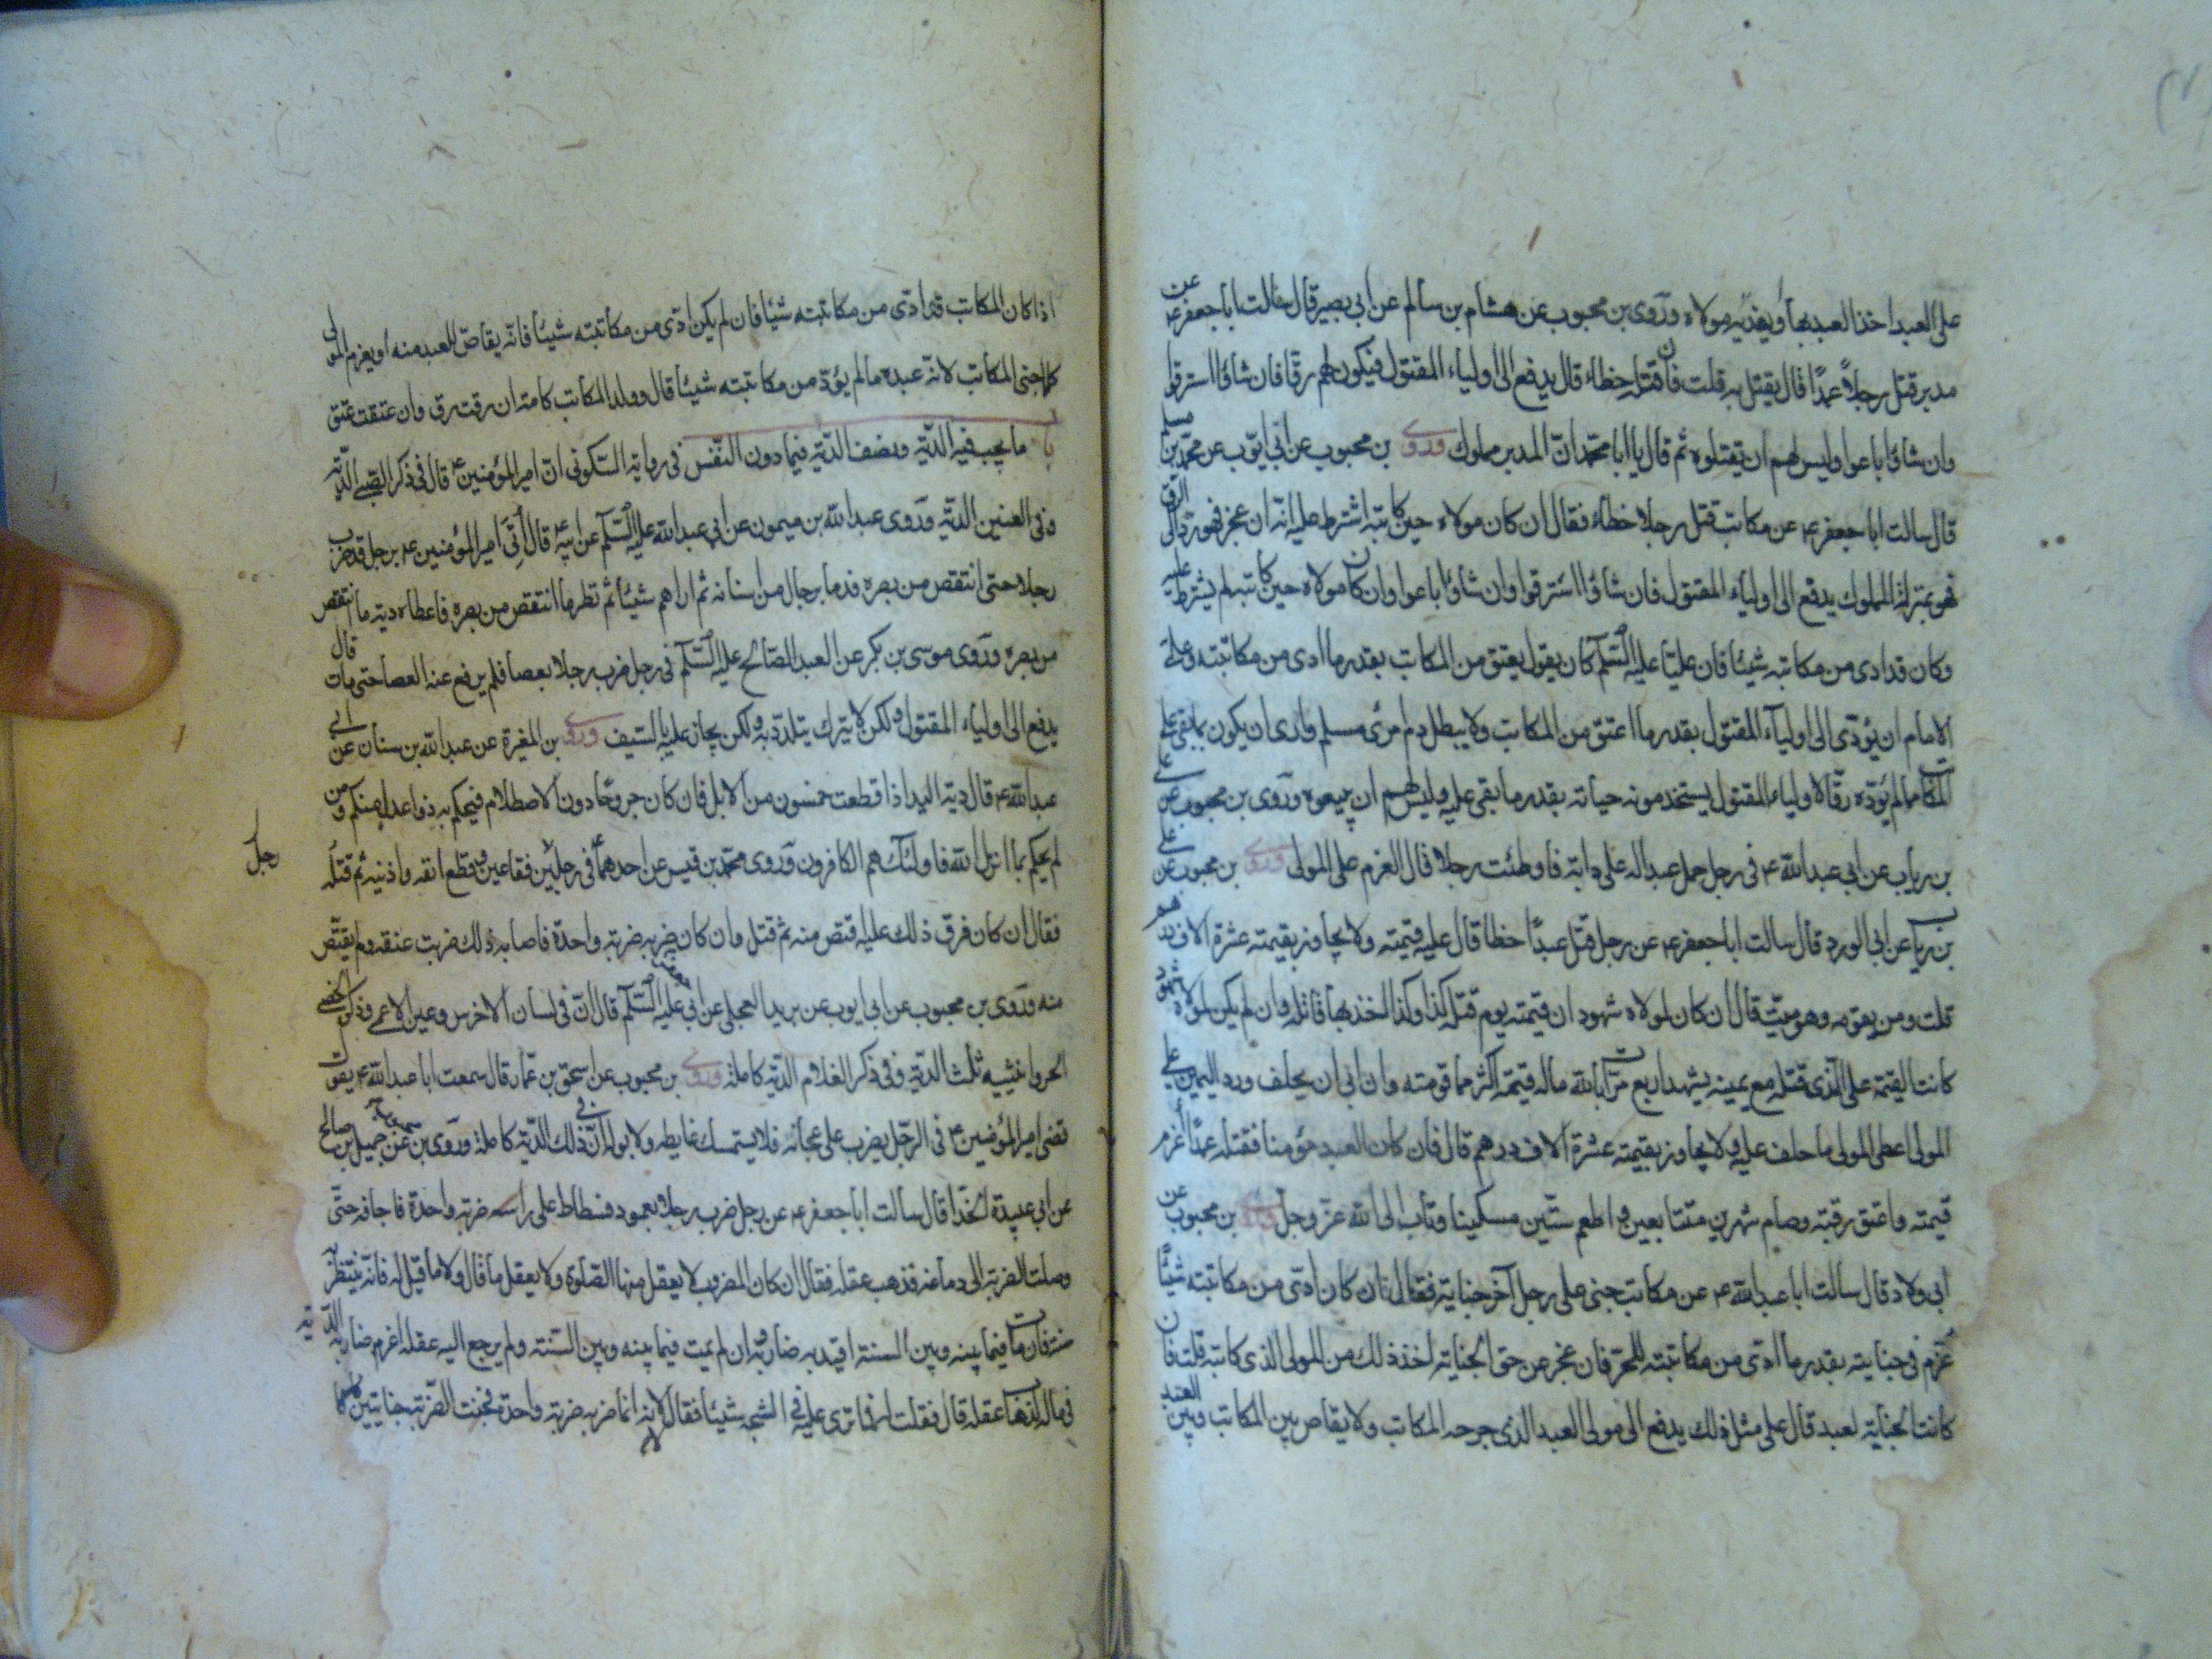 على العبد اخذ العبد بها أو يفديه مولاه وروى بن محبوب عن هشام بن سالم عن ابى بصير قال سالت ابا جعفر ع عن
مدبر قتل رجلاً عمدًا قال يقتل به قلت فان قتله خطاء قال يدفع الى اولياء المقتول فيكون لهم رقا فان شاؤا استرقوا
وان شاؤا باعوا وليس لهم ان يقتلوه ثم قال يا ابا محمد انّ المدبر مملوك وروى بن محبوب عن ابى ايوب عن محمد بن مسلم
قال سالت ابا جعفر ع عن مكاتب قتل رجلا خطاء فقال ان كان مولاه حين كاتبه اشترط عليه انه ان عجز فهو رد الى الرق
فهو بمنزلة المملوك يدفع الى اولياء المقتول فان شاؤا استرقوا وان شاؤا باعوا وان كان مولاه حين كاتبه لم يشترط عليه
وكان قد ادى من مكاتبته شيئا فان عليّا عليه السّلم كان يقول يعتق من المكاتب بقدر ما ادى من مكاتبته وعلى
الامام ان يؤدّى الى اولياء المقتول بقدر ما اعتق من المكاتب ولا يبطل دم امرئ مسلم وارى ان يكون ما بقى على
المكاتب مما لم يؤدّه رقّا لاولياء المقتول يستخدمونه حياته بقدر ما بقى عليه وليس لهم ان يبيعوه وروى بن محبوب عن على
بن رياب عن ابى عبد الله ع فى رجل حمل عبدا له على دابته فاوطئت رجلا قال الغرم على المولى وروى بن محبوب عن على
بن رياب عن ابى الورد قال سالت ابا جعفر ع عن رجل قتل عبدًا خطا قال عليه قيمته ولا يجاوز بقيمته عشرة الاف درهم
قلت ومن يقومه وهو ميّت قال ان كان لمولاه شهود ان قيمته يوم قتله كذا وكذا اخذ بها قاتله وان لم يكن لمولاه شهود
كانت القيمة على الذى قتله مع يمينه يشهد اربع مرات بالله ماله قيمة اكثر مما قومته وان ابى ان يحلف ورد اليمين على
المولى اعطى المولى ما حلف عليه ولا يجاوز بقيمته عشرة الاف درهم قال فان كان العبد مؤمنا فقتله عمدًا أغرم
قيمته واعتق رقبة وصام شهرين متتابعين واطعم ستّين مسكينا وتاب الى الله عزّ وجلّ وروى بن محبوب عن
ابى ولاد قال سالت ابا عبد الله ع عن مكاتب جنى على رجل آخر جناية فقال ان كان ادّى من مكاتبته شيئًا
غرم فى جنايته بقدر ما ادّى من مكاتبته للحرّ فان عجز عن حق الجناية اخذ ذلك من المولى الذى كاتبه قلت فان
كانت الجناية لعبد قال على مثل ذلك يدفع الى مولى العبد الذى جرحه المكاتب ولا يقاص بين المكاتب وبين العبد
اذا كان المكاتب قد ادّى من مكاتبته شيئا فان لم يكن ادّى من مكاتبته شيئا فانّه يقاصّ للعبد منه او يغرم المولى
كلما جنى المكاتب لانّه عبده ما لم يؤدّ من مكاتبته شيئا قال وولد المكاتبة كامته ان رقت رق وان عتقت عتق
باب ما يجب فيه الدّية ونصف الدّية فيما دون النّفس فى رواية السّكونى انّ امير المؤمنين ع قال فى ذكر الصّبى الدّية
وفى العنين الدّية وروى عبد الله بن ميمون عن ابى عبد الله عليه السّلم عن ابيه ع قال أتى امير المؤمنين ع برجل قد ضرب
رجلا حتى انتقص من بصره فدعا برجال من اسنانه ثم اراهم شيئا ثم نظر ما انتقص من بصره فاعطاه دية ما انتقص
من بصره وروى موسى بن بكر عن العبد الصّالح عليه السّلم فى رجل ضرب رجلا بعصا فلم يرفع عنه العصا حتى مات قال
يدفع الى اولياء المقتول ولكن لا يترك يتلذّذ به ولكن يجاز عليه بالسّيف وروى بن المغيرة عن عبد الله بن سنان عن ابى
عبد الله ع قال دية اليد اذا قطعت خمسون من الابل فان كان جروحًا دون الاصطلام فيحكم به ذوا عدل منكم ومن
لم يحكم بما انزل الله فاولئك هم الكافرون وروى محمّد بن قيس عن احدهما ع فى رجل فقأ عين رجل وقطع انفه واذنيه ثم قتله
رجل
فقال ان كان فرق ذلك عليه اقتص منه ثم قتل وان كان ضربه ضربة واحدة فاصابه ذلك ضربت عنقه ولم يقتّص
منه وروى بن محبوب عن ابى ايوب عن بريد العجلى عن ابى جعفر عليه السّلم قال انّ فى لسان الاخرس وعين الاعمى وذكر الخصى
الحر وانثييه ثلث الدّية وفى ذكر الغلام الدّية كاملة وروى بن محبوب عن اسحق بن عمّار قال سمعت ابا عبد الله ع يقول
قضى امير المؤمنين ع فى الرّجل يضرب على عجانه فلا يستمسك غايطه ولا بوله انّ فى ذلك الدّية كاملة وروى بن محبوب عن جميل بن صالح
عن ابى عبيدة الحذّا قال سالت ابا جعفر ع عن رجل ضرب رجلا بعمود فسطاط على راسه ضربة واحدة فاجافه حتّى
وصلت الضربة الى دماغه فذهب عقله فقال ان كان المضروب لا يعقل منها الصّلوة ولا يعقل ما قال ولا ما قيل له فانّه ينتظر به
سنة فان مات فيما بينه وبين السنة اقيد به ضاربه وان لم يمت فيما بينه وبين السّنة ولم يرجع اليه عقله اغرم ضاربه الدّية
فى ماله لذهاب عقله قال فقلت له فما ترى عليه فى الشجه شيئا فقال لا لانه انما ضربه ضربة واحدة فجنت الضّربة جنايتين